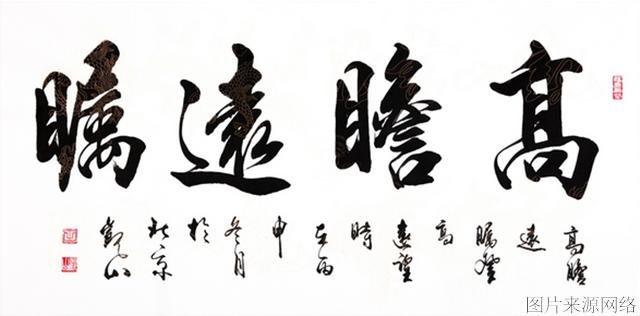 高瞻遠矚
高瞻
遠
矚登
高
遠望
時
在丙
申
冬月
於
北京
图片来源网络